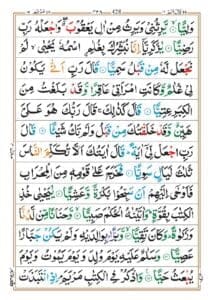 وَلِيًّا ۙ يَّرِثُنِيْ وَيَرِثُ مِنْ اٰلِ يَعْقُوْبَ ۖ وَاجْعَلْهُ رَبِّ
رَضِيًّا يٰزَكَرِيَّاۤ اِنَّا نُبَشِّرُكَ بِغُلٰمِ اۨسْمُهٗ يَحْيٰى لَمْ
نَجْعَلْ لَّهٗ مِنْ قَبْلُ سَمِيًّا قَالَ رَبِّ اَنّٰى يَكُوْنُ
لِيْ غُلٰمٌ وَّكَانَتِ امْرَاَتِيْ عَاقِرًا وَّقَدْ بَلَغْتُ مِنَ
الْكِبَرِ عِتِيًّا قَالَ كَذٰلِكَ قَالَ رَبُّكَ هُوَ عَلَيَّ
هَيِّنٌ وَّقَدْ خَلَقْتُكَ مِنْ قَبْلُ وَلَمْ تَكُ شَيْئًا قَالَ
رَبِّ اجْعَلْ لِّيْۤ اٰيَةً قَالَ اٰيَتُكَ اَلَّا تُكَلِّمَ النَّاسَ
ثَلٰثَ لَيَالٍ سَوِيًّا فَخَرَجَ عَلٰى قَوْمِهٖ مِنَ الْمِحْرَابِ
فَاَوْحٰۤى اِلَيْهِمْ اَنْ سَبِّحُوْا بُكْرَةً وَّعَشِيًّا يٰيَحْيٰى خُذِ
الْكِتٰبَ بِقُوَّةٍ وَاٰتَيْنٰهُ الْحُكْمَ صَبِيًّا وَّحَنَانًا مِّنْ لَّدُنَّا
وَزَكٰوةً وَكَانَ تَقِيًّا وَّبَرًّا بِوَالِدَيْهِ وَلَمْ يَكُنْ جَبَّارًا
عَصِيًّا وَسَلٰمٌ عَلَيْهِ يَوْمَ وُلِدَ وَيَوْمَ يَمُوْتُ وَيَوْمَ
يُبْعَثُ حَيًّا وَاذْكُرْ فِي الْكِتٰبِ مَرْيَمَ اِذِ انْتَبَذَتْ